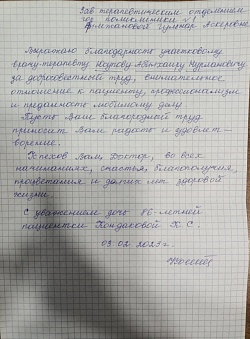 Зав. терапевтическим отделением
гор. поликлиники №1
Гульнар Аскеровне
Выражаю благодарность участковому
врачу-терапевту Нурлановичу
за добросовестный труд, внимательное
отношение к пациенту, профессионализм
и преданность любимому делу
Пусть Ваш благородный труд
приносит Вам радость и удовлет-
ворение.
Успехов Вам, Доктор, во всех
начинаниях, счастья, благополучия,
процветания и долгих лет здоровой
жизни.
С уважением дочь 86-летней
пациентки Кондаковой Х. С.
03.02.2023 г.